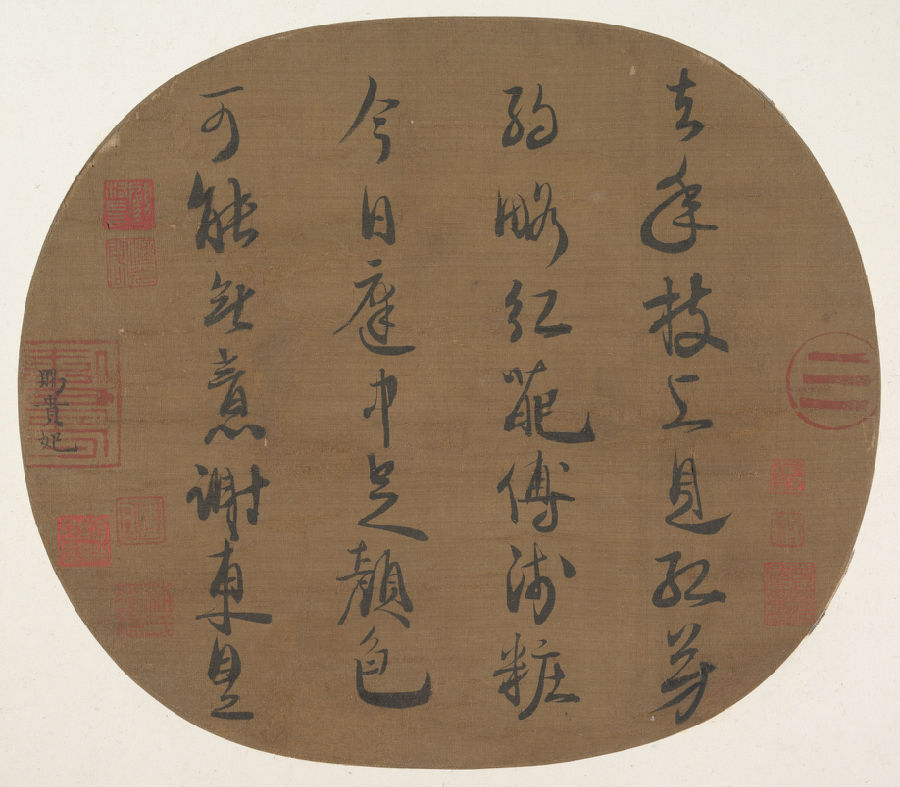 去年枝上見紅芳
約略紅葩傅淺粧
今日庭中足顏色
可能無意謝東皇
賜貴妃